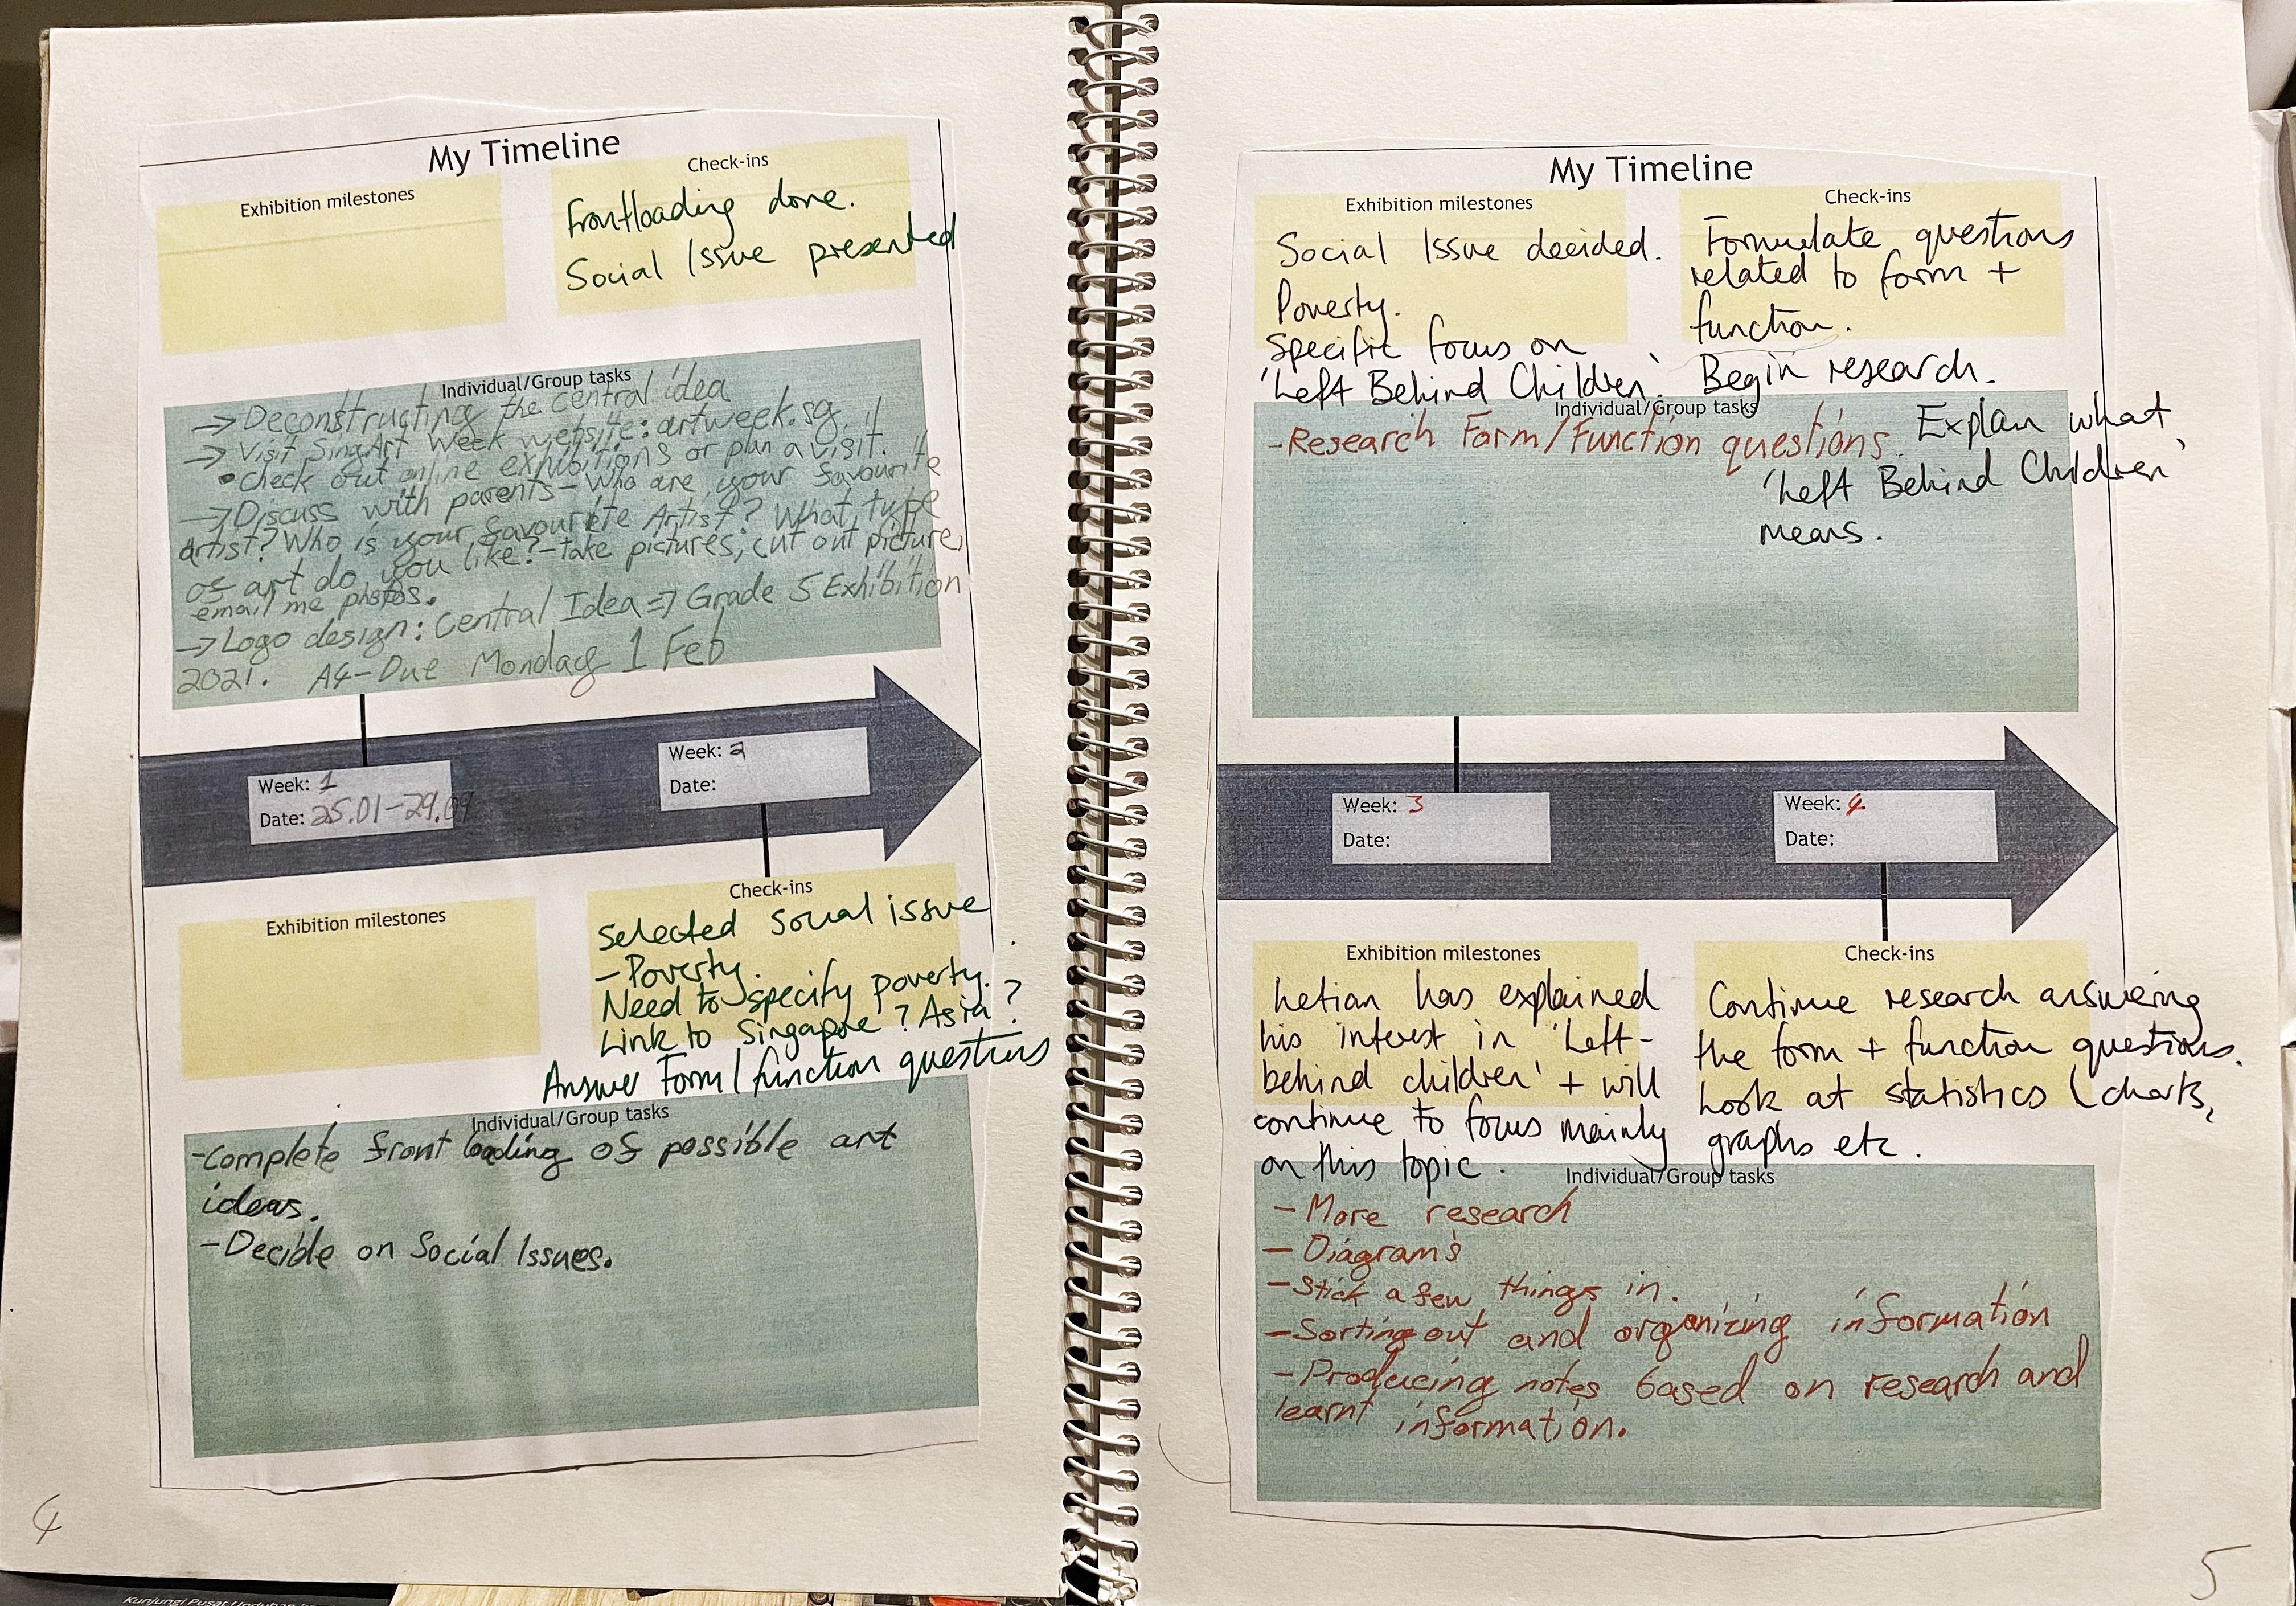 My Timeline
Exhibition milestones
Check-ins
Frontloading done.
Social Issue presented
Individual/Group tasks
→ Deconstructing the central idea
→ Visit SingArt Week website: artweek.sg.
• check out online exhibitions or plan a visit.
→ Discuss with parents - Who are your favourite
artist? Who is your favourite Artist? What type
of art do you like? - take pictures, cut out pictures,
email me photos.
→ Logo design: Central Idea => Grade 5 Exhibition
2021. A4 - Due Monday 1 Feb
Week: 1
Date: 25.01-29.01
Week: 2
Date:
Exhibition milestones
Check-ins
Selected social issue
- Poverty.
Need to specify poverty.
Link to Singapore? Asia?
Answer Form/function questions
Individual/Group tasks
-Complete front loading of possible art
ideas.
-Decible on Social Issues.
4
My Timeline
Exhibition milestones
Social Issue decided.
Poverty.
Specific focus on
'Left Behind Children'.
Check-ins
Formulate questions
related to form +
function.
Begin research.
Individual/Group tasks
-Research Form/Function questions. Explain what
'Left Behind Children'
means.
Week: 3
Date:
Week: 4
Date:
Exhibition milestones
Letian has explained
his interest in 'Left-
behind children' + will
continue to focus mainly
on this topic.
Check-ins
Continue research answering
the form + function questions.
Look at statistics (charts,
graphs etc.
Individual/Group tasks
- More research
- Diagram's
- Stick a few things in.
- Sorting out and organizing information
- Producing notes based on research and
learnt information.
5
Kunjungi Pusat Unduhan